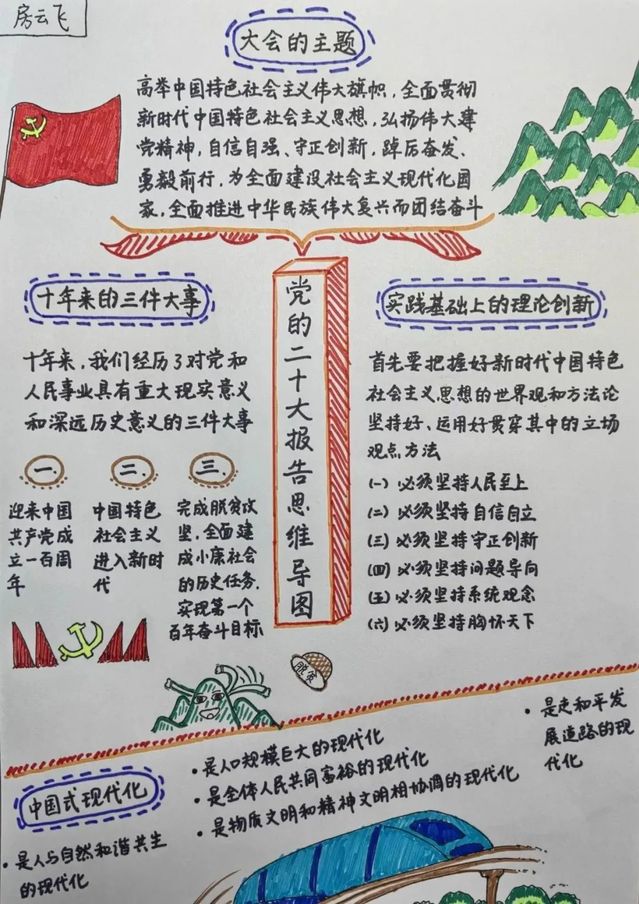 房云飞
大会的主题
高举中国特色社会主义伟大旗帜，全面贯彻
新时代中国特色社会主义思想，弘扬伟大建
党精神，自信自强、守正创新，踔厉奋发、
勇毅前行，为全面建设社会主义现代化国
家，全面推进中华民族伟大复兴而团结奋斗
党的二十大报告思维导图
十年来的三件大事
十年来，我们经历了对党和
人民事业具有重大现实意义
和深远历史意义的三件大事
一.
迎来中国
共产党成
立一百周
年
二.
中国特色
社会主义
进入新时
代
三.
完成脱贫攻
坚，全面建
成小康社会
的历史任务，
实现第一个
百年奋斗目标
脱贫
实践基础上的理论创新
首先要把握好新时代中国特色
社会主义思想的世界观和方法论
坚持好、运用好贯穿其中的立场
观点方法
(一) 必须坚持人民至上
(二) 必须坚持自信自立
(三) 必须坚持守正创新
(四) 必须坚持问题导向
(五) 必须坚持系统观念
(六) 必须坚持胸怀天下
中国式现代化
· 是人口规模巨大的现代化
· 是全体人民共同富裕的现代化
· 是物质文明和精神文明相协调的现代化
· 是人与自然和谐共生
的现代化
· 是走和平发
展道路的现
代化